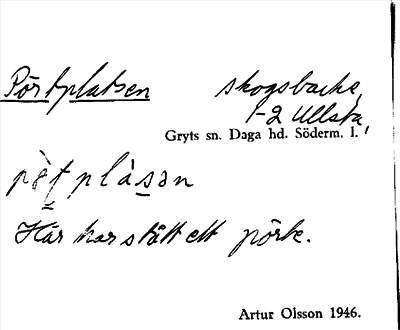 Pörtplatsen skogsbacke,
1-2 Ullsta,
Gryts sn. Daga hd. Söderm. l.
pèt plásan
Här har stått ett pörte.
Artur Olsson 1946.